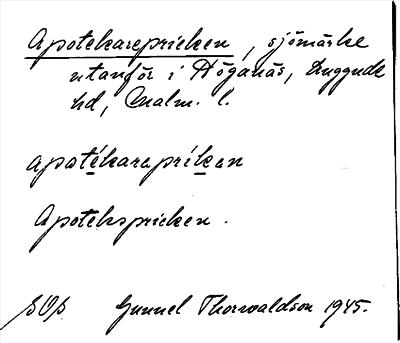 Apotekarepricken, sjömärke
utanför i Höganäs, Luggude
hd, Malm. l.
apotékarapríken
Apotekspricken.
SOS Gunnel Thorwaldson 1945.